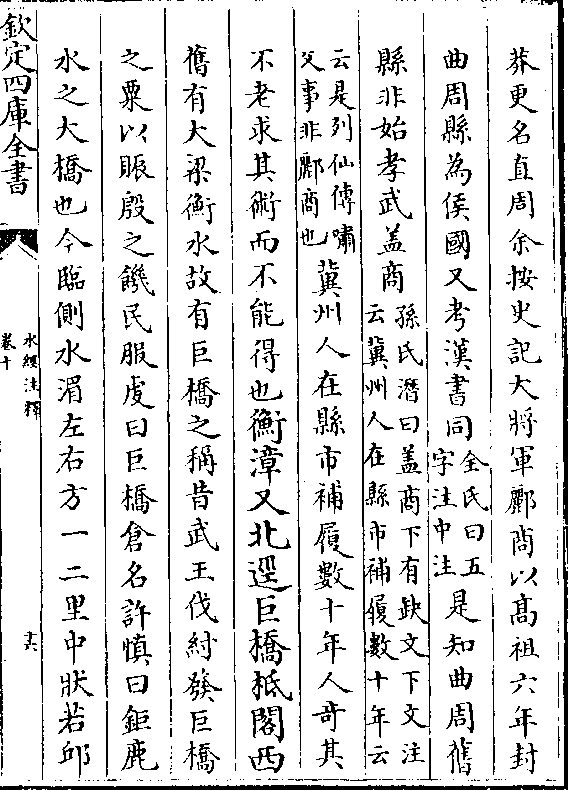 莽更名直周余按史記大將軍酈商以髙祖六年封
曲周縣為侯國又考漢書同全氏曰五字注中注是知曲周舊
縣非始孝武盖商孫氏潛曰盖商下有缺文下文注云冀州人在縣市補履數十年云
云是列仙傳嘯父事非酈商也冀州人在縣市補履數十年人竒其
不老求其術而不能得也衡漳又北逕巨橋柢閣西
舊有大梁衡水故有巨橋之稱昔武王伐紂發巨橋
之粟以賑殷之饑民服虔曰巨橋倉名許慎曰鉅鹿
水之大橋也今臨側水湄左右方一二里中狀若邱
欽定四庫全書
水經注釋
卷十
十六